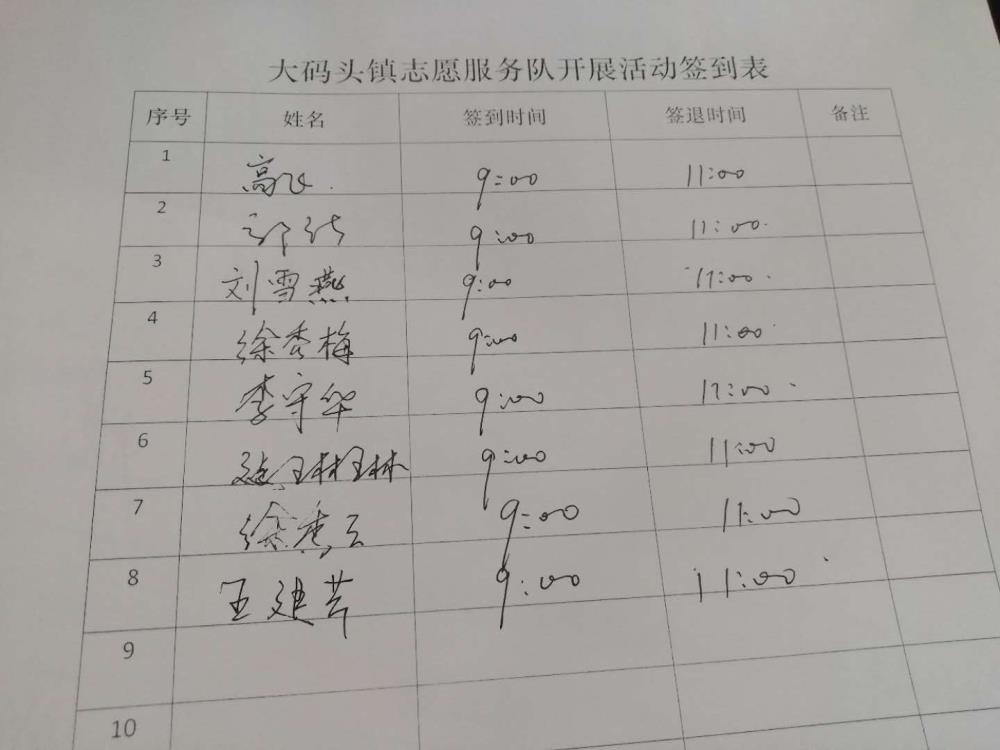 大码头镇志愿服务队开展活动签到表
序号 姓名 签到时间 签退时间 备注
1 高飞 9:00 11:00
2 9:00 11:00
3 刘雪燕 9:00 11:00
4 徐秀梅 9:00 11:00
5 李守华 9:00 11:00
6 延琳琳 9:00 11:00
7 徐秀云 9:00 11:00
8 王建芹 9:00 11:00
9
10